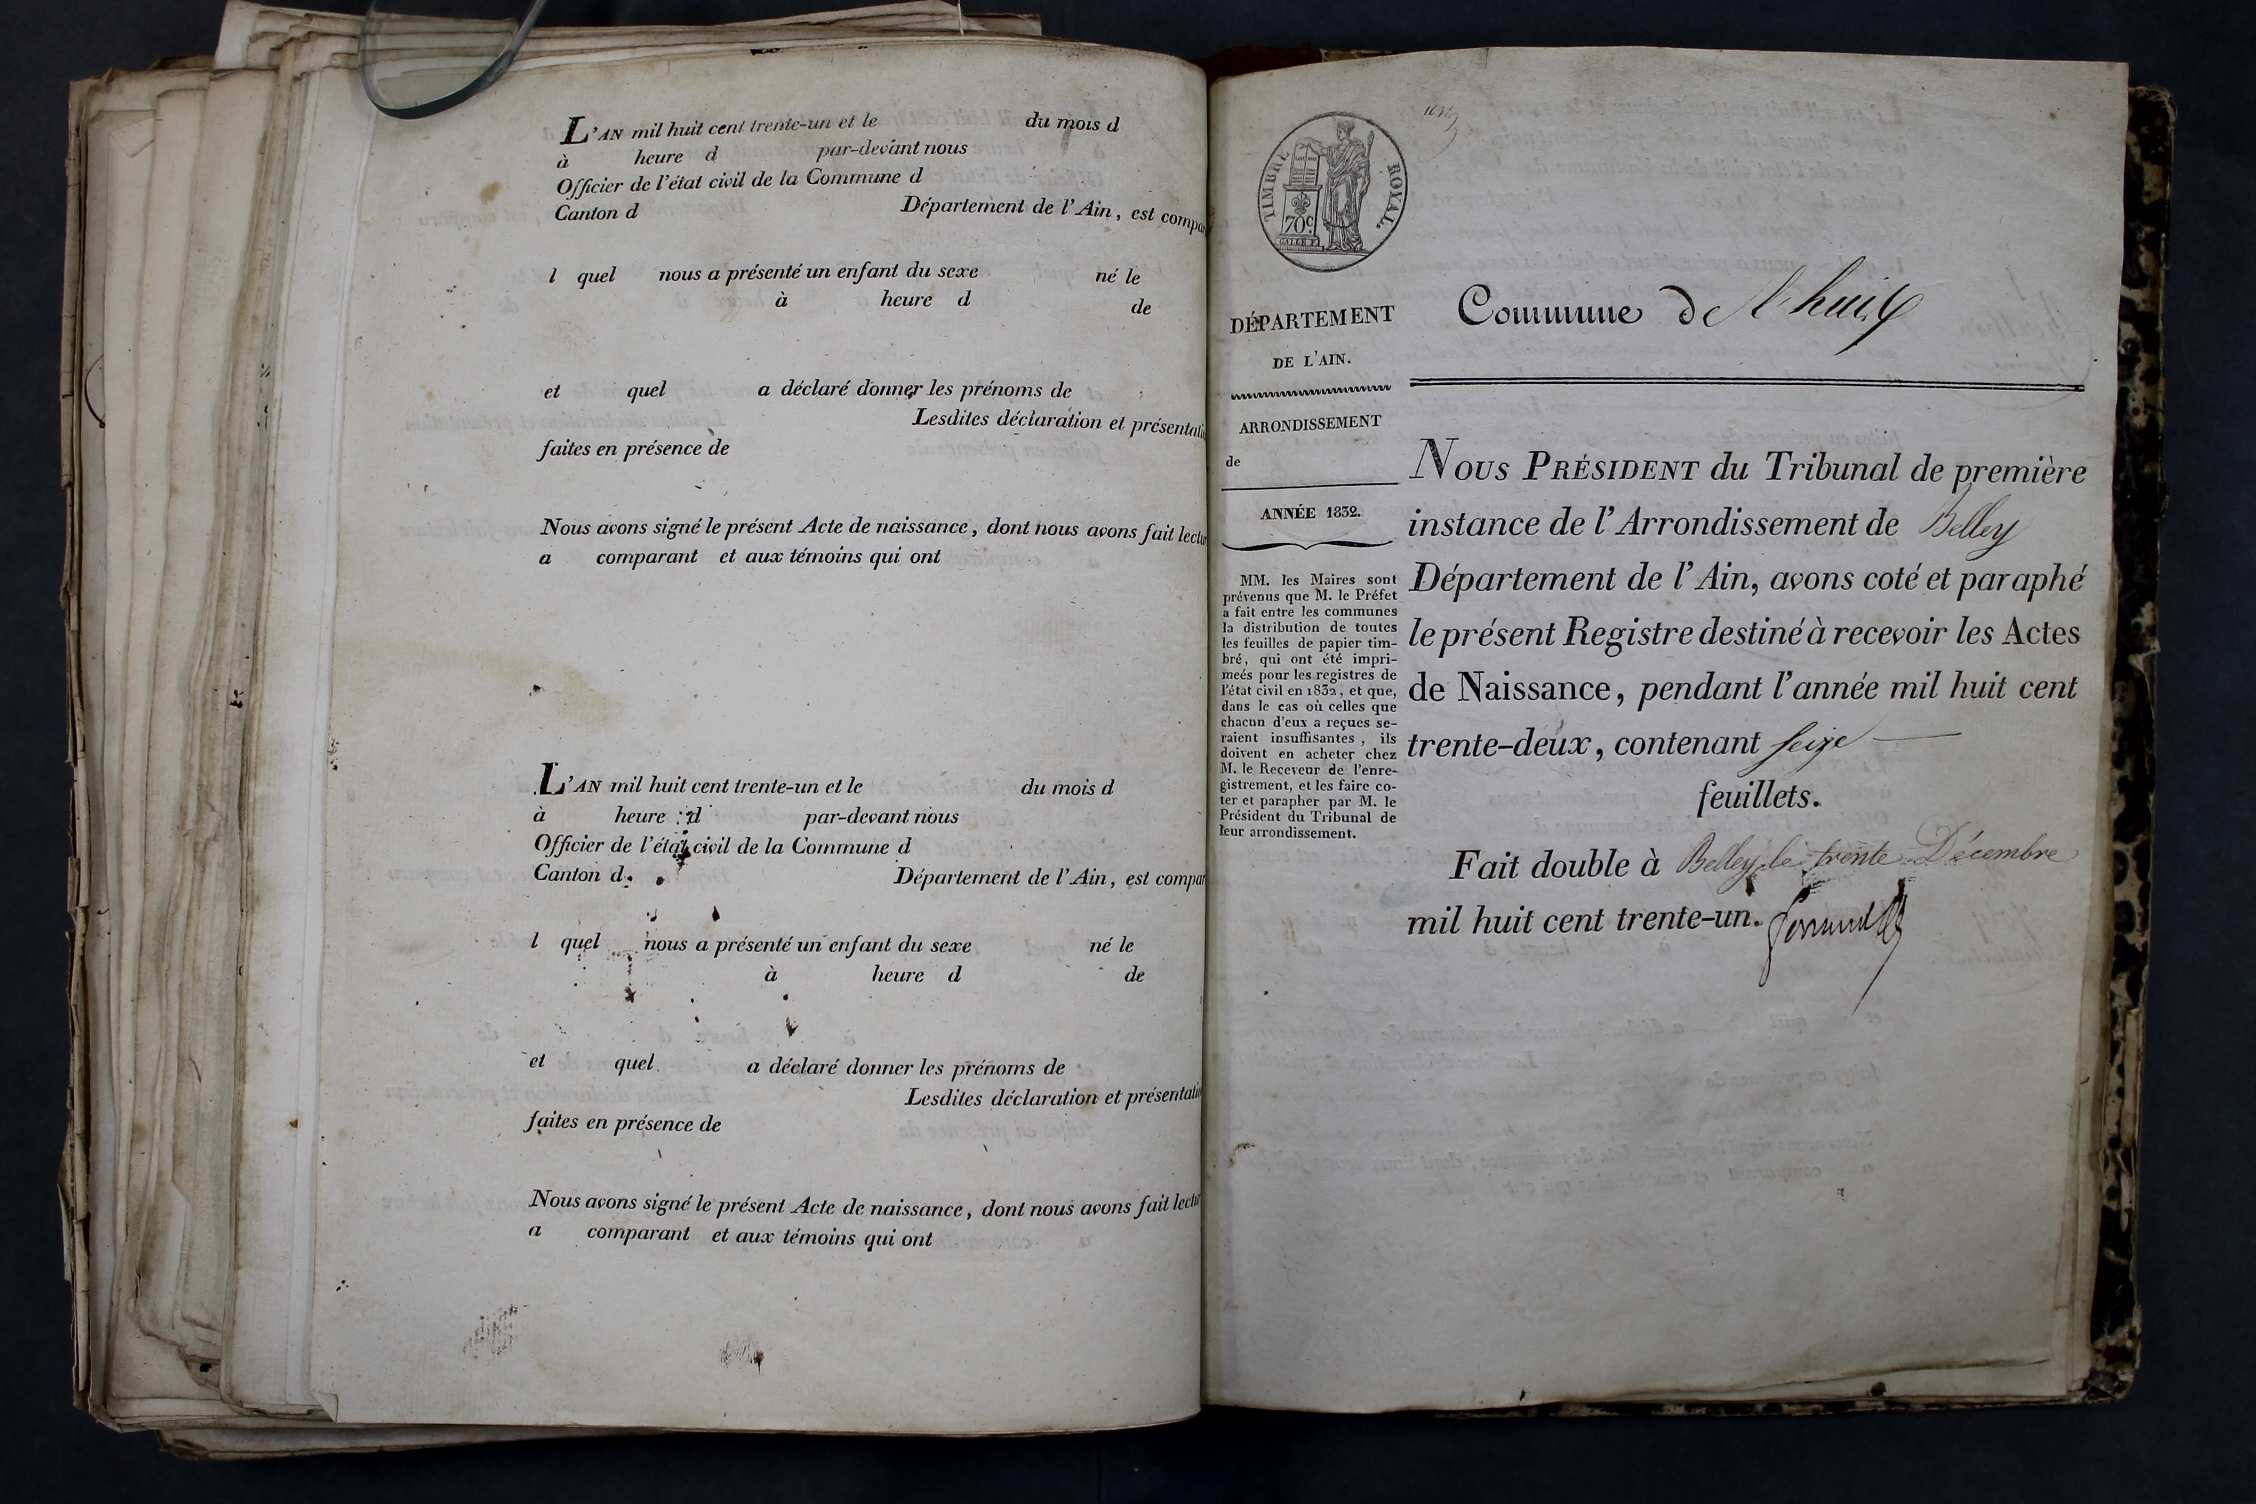 L'AN mil huit cent trente-un et le du mois d
à heure d par-devant nous
Officier de l'état civil de la Commune d
Canton d Département de l'Ain, est compar
l quel nous a présenté un enfant du sexe né le
à heure d de
et quel a déclaré donner les prénoms de
Lesdites déclaration et présentatio
faites en présence de
Nous avons signé le présent Acte de naissance, dont nous avons fait lectur
a comparant et aux témoins qui ont
L'AN mil huit cent trente-un et le du mois d
à heure d par-devant nous
Officier de l'état civil de la Commune d
Canton d Département de l'Ain, est compar
l quel nous a présenté un enfant du sexe né le
à heure d de
et quel a déclaré donner les prénoms de
Lesdites déclaration et présentatio
faites en présence de
Nous avons signé le présent Acte de naissance, dont nous avons fait lectur
a comparant et aux témoins qui ont
TIMBRE ROYAL.
70c.
DÉPARTEMENT
DE L'AIN.
ARRONDISSEMENT
de
ANNÉE 1832.
MM. les Maires sont
prévenus que M. le Préfet
a fait entre les communes
la distribution de toutes
les feuilles de papier tim-
bré, qui ont été impri-
meés pour les registres de
l'état civil en 1832, et que,
dans le cas où celles que
chacun d'eux a reçues se-
raient insuffisantes, ils
doivent en acheter chez
M. le Receveur de l'enre-
gistrement, et les faire co-
ter et parapher par M. le
Président du Tribunal de
leur arrondissement.
Commune de Lhuis
NOUS PRÉSIDENT du Tribunal de première
instance de l'Arrondissement de Belley
Département de l'Ain, avons coté et paraphé
le présent Registre destiné à recevoir les Actes
de Naissance, pendant l'année mil huit cent
trente-deux, contenant seize
feuillets.
Fait double à Belley le trente Décembre
mil huit cent trente-un.